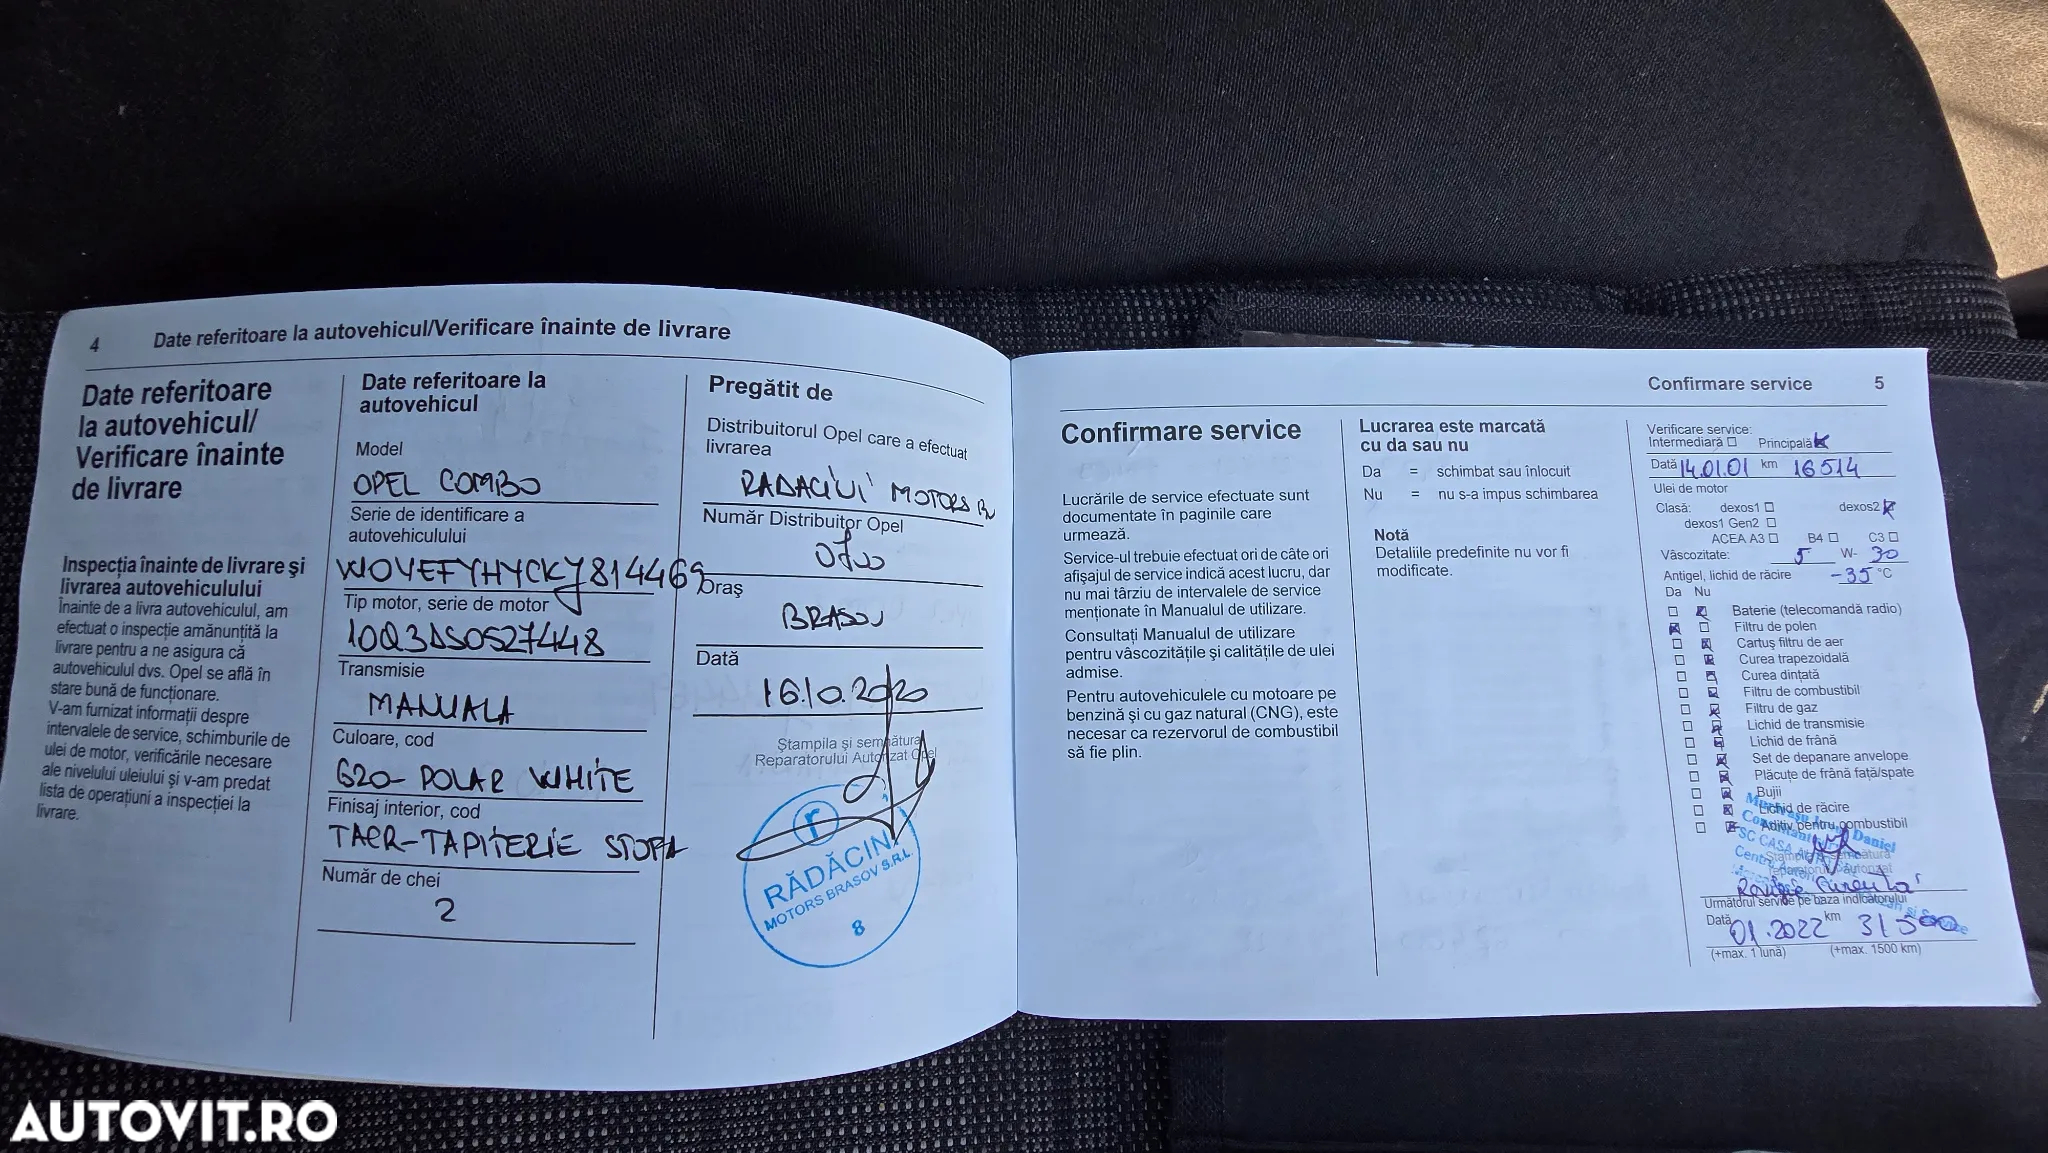 4 Date referitoare la autovehicul/Verificare înainte de livrare
Date referitoare
la autovehicul/
Verificare înainte
de livrare
Inspecția înainte de livrare și
livrarea autovehiculului
Înainte de a livra autovehiculul, am
efectuat o inspecție amănunțită la
livrare pentru a ne asigura că
autovehiculul dvs. Opel se află în
stare bună de funcționare.
V-am furnizat informații despre
intervalele de service, schimburile de
ulei de motor, verificările necesare
ale nivelului uleiului și v-am predat
lista de operațiuni a inspecției la
livrare.
Date referitoare la
autovehicul
Model
OPEL COMBO
Serie de identificare a
autovehiculului
W0VEFYHYCKJ814469
Tip motor, serie de motor
10Q3DS0527448
Transmisie
MANUALA
Culoare, cod
G20- POLAR WHITE
Finisaj interior, cod
TAER-TAPITERIE STOFA
Număr de chei
2
Pregătit de
Distribuitorul Opel care a efectuat
livrarea
RADACINI MOTORS
Număr Distribuitor Opel
Oraș
BRASOV
Dată
16.10.2020
Ștampila și semnătura
Reparatorului Autorizat Opel
r
RĂDĂCINI
MOTORS BRASOV S.R.L.
8
Confirmare service 5
Confirmare service
Lucrările de service efectuate sunt
documentate în paginile care
urmează.
Service-ul trebuie efectuat ori de câte ori
afișajul de service indică acest lucru, dar
nu mai târziu de intervalele de service
menționate în Manualul de utilizare.
Consultați Manualul de utilizare
pentru vâscozitățile și calitățile de ulei
admise.
Pentru autovehiculele cu motoare pe
benzină și cu gaz natural (CNG), este
necesar ca rezervorul de combustibil
să fie plin.
Lucrarea este marcată
cu da sau nu
Da = schimbat sau înlocuit
Nu = nu s-a impus schimbarea
Notă
Detaliile predefinite nu vor fi
modificate.
Verificare service:
Intermediară Principală
Dată 14.01.01 km 16514
Ulei de motor
Clasă: dexos1 dexos2
dexos1 Gen2
ACEA A3 B4 C3
Vâscozitate: 5 W- 30
Antigel, lichid de răcire -35 °C
Da Nu
Baterie (telecomandă radio)
Filtru de polen
Cartuș filtru de aer
Curea trapezoidală
Curea dințată
Filtru de combustibil
Filtru de gaz
Lichid de transmisie
Lichid de frână
Set de depanare anvelope
Plăcuțe de frână față/spate
Bujii
Lichid de răcire
Aditiv pentru combustibil
Daniel
SC CASA
Ștampila și semnătura
reparatorului autorizat
Următorul service pe baza indicatorului
Dată 01.2022 km 31500
(+max. 1 lună) (+max. 1500 km)
AUTOVIT.RO